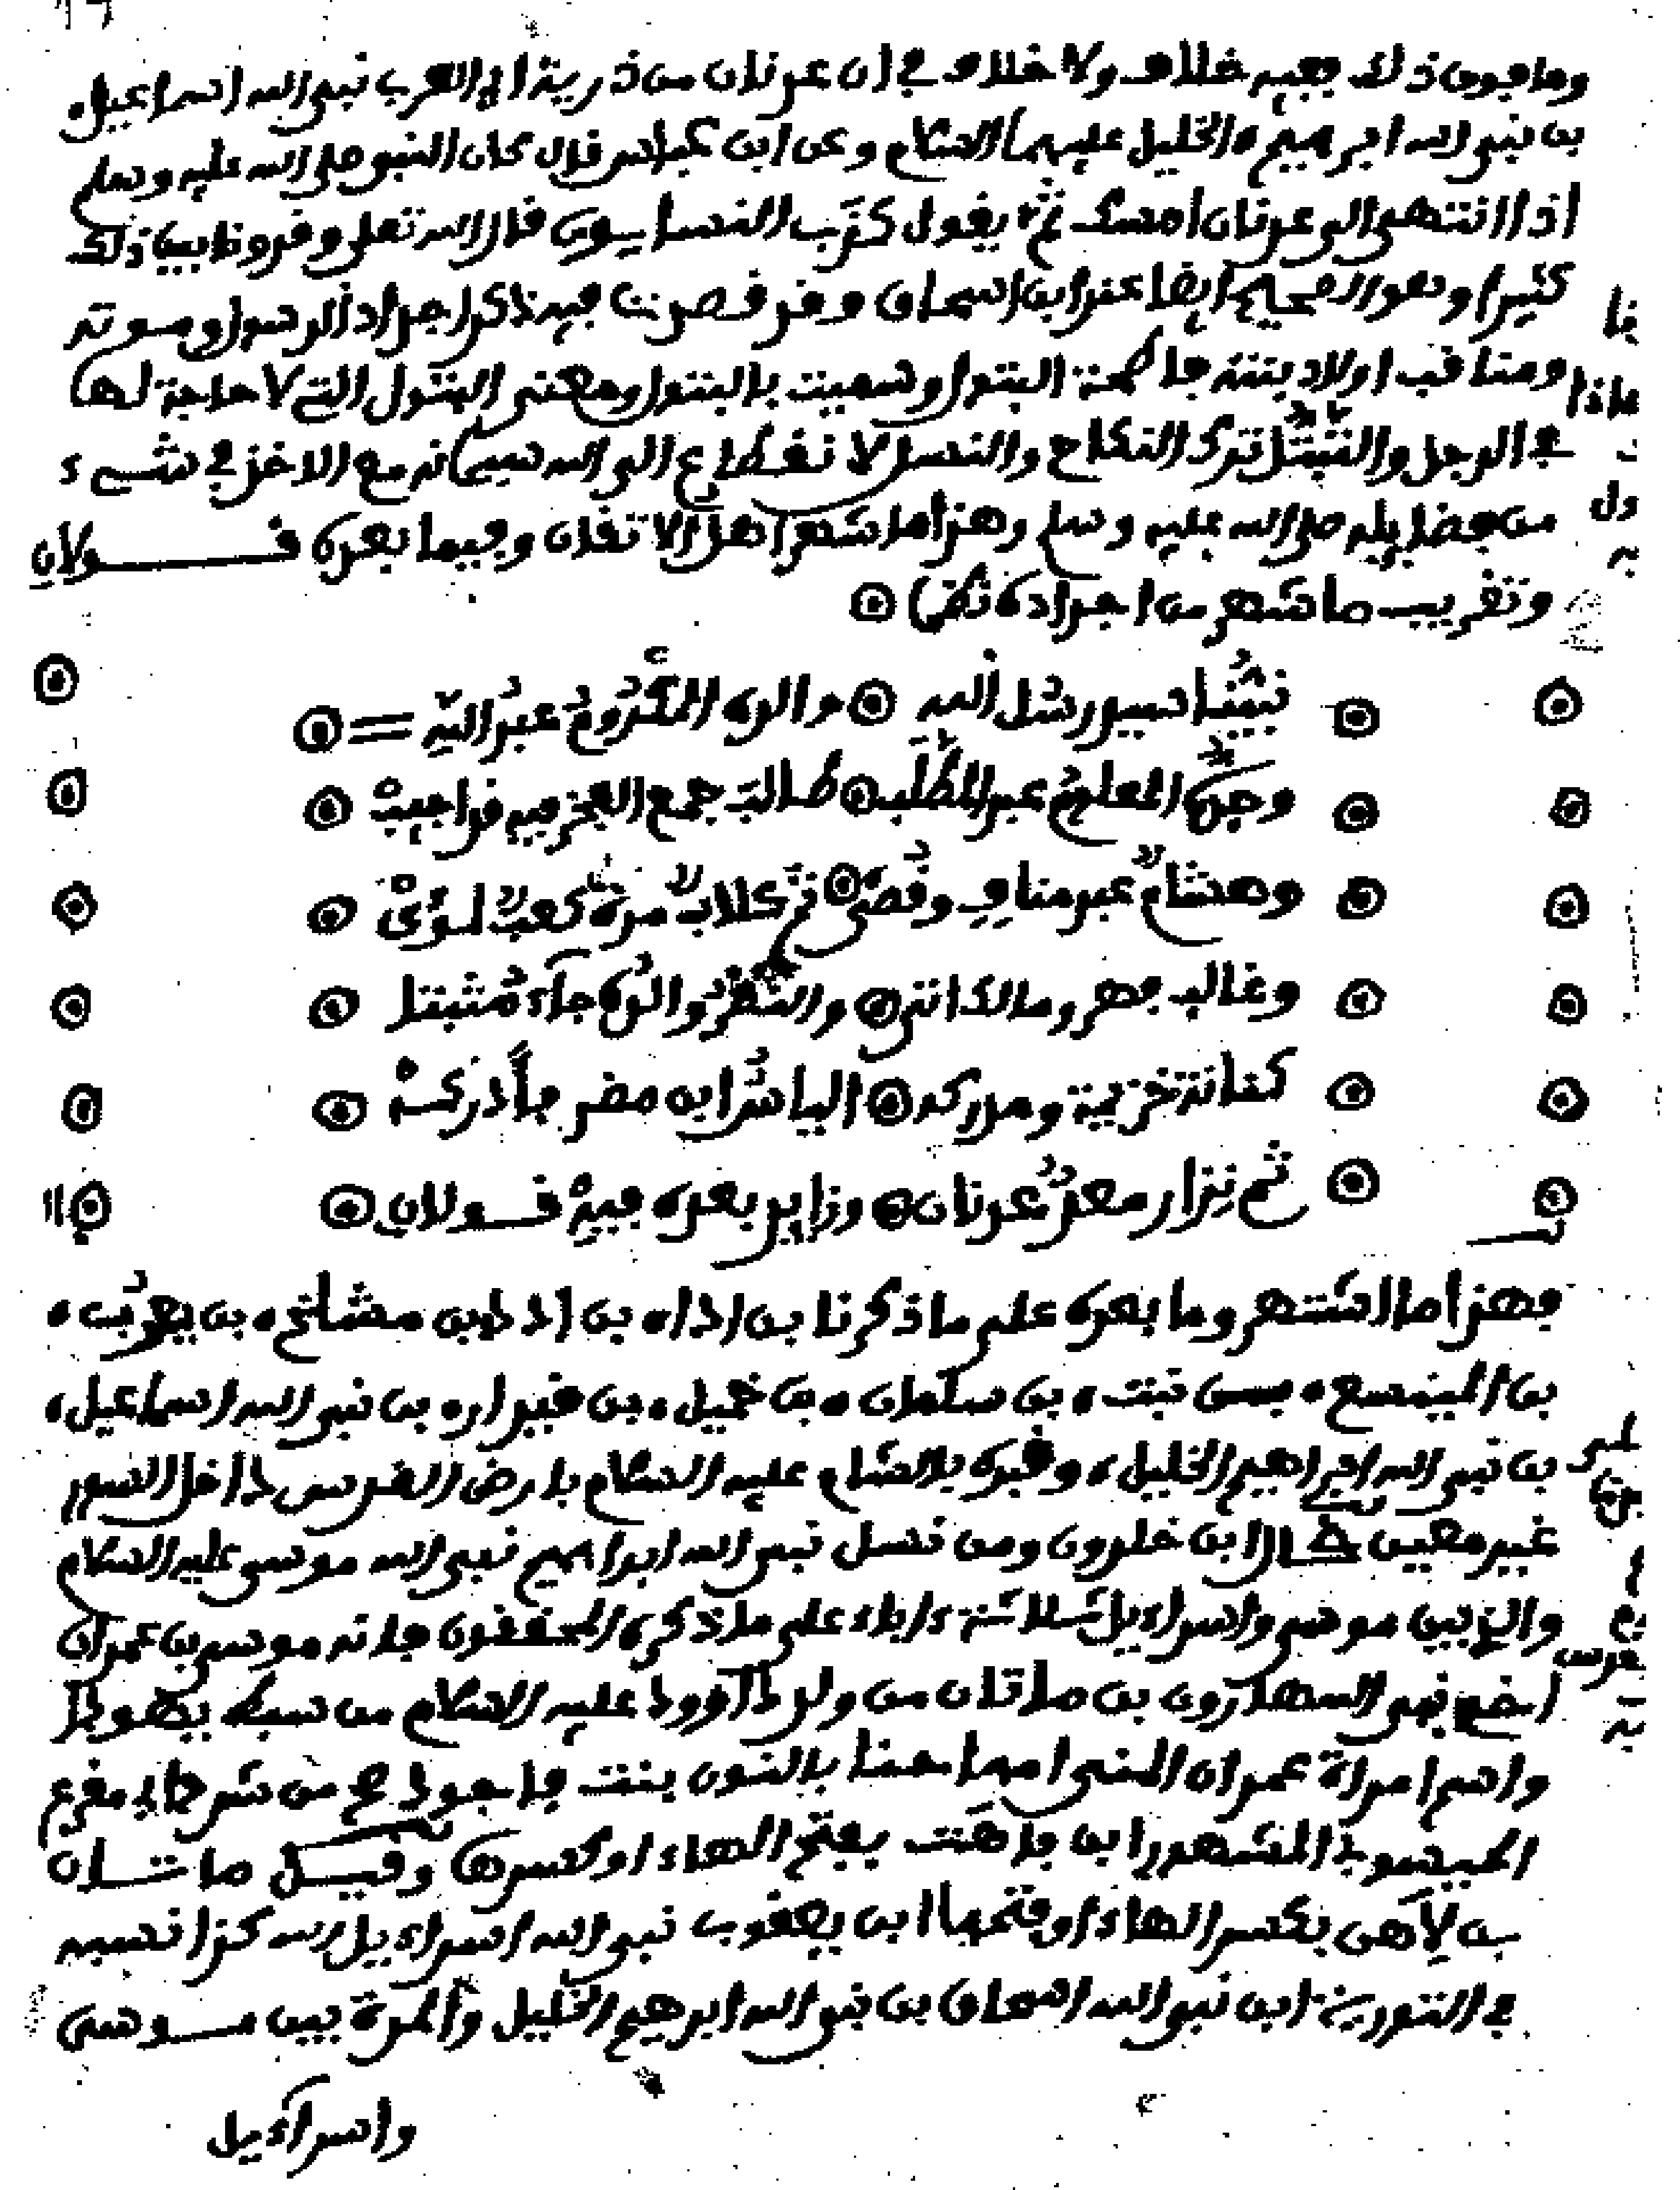 وما فوق ذلك ففيه خلاف ولا خلاف في ان عدنان من ذرية اب العرب نبي الله اسماعيل
بن نبي الله ابرهيم الخليل عليهما السلام وعن ابن عباس قال كان النبي صلى الله عليه وسلم
اذا انتهى الى عدنان امسك ثم يقول كذب النسابون قال الله تعلى وقرونا بين ذلك
كثيرا وهو الصحيح ايضا عند ابن اسحاق وقد قصدت فيه ذكر اجداد الرسول
ومناقب اولاد بنته فاطمة البتول وسميت بالبتول ومعنى البتول التي لا حاجة لها
في الرجل والتبتل ترك النكاح والنسل لانقطاع الى الله سبحانه مع الاخذ في شيء
من فضايله صلى الله عليه وسلم وهذا ما شهر اهل الاتفاق وفيما بعده قولان
وتقريب ما شهر من اجداده نظما
نبينا سيد رسل الله والده المكروم عبد الله
وجده المعلوم عبد المطلب طالب جمع الفخر فيه فراجيب
وهشام عبد مناف وقصي ثم كلاب مرة كعب لؤي
وغالب فهر ومالك اتى والنضر والده جاء مثبتا
كنانة خزيمة ومدركه الياس ابن مضر فادركه
ثم نزار معد عدنان وزايد بعده فيه قولان
فهذا ما اشتهر وما بعده على ما ذكرنا بن اداه بن ادد بن مشلخ بن يعرب
بن الميسع بن نبت بن سلمان بن حميل بن قيدار بن نبي الله اسماعيل
بن نبي الله ابراهيم الخليل وقبره بالشام عليه السلام بارض القدس داخل السور
غير معين قال ابن خلدون ومن نسل نبي الله ابراهيم نبي الله موسى عليه السلام
والذي بين موسى واسراءيل ثلاثة ءاباء على ما ذكره المحققون فانه موسى بن عمران
اخي نبي الله هارون بن ماتان من ولد داوود عليه السلام من سبط يهودا
واسم امراة عمران المنسي امها حنا بالنون بنت فاجود
المشهور ابن فاهت بفتح الهاء او كسرها وقيل ماتان
بن لاهى بكسر الهاء او فتحها ابن يعقوب نبي الله اسراءيل الله كذا نسبه
في التورية ابن نبي الله اسحاق بن نبي الله ابرهيم الخليل والمدة بين موسى
واسراءيل